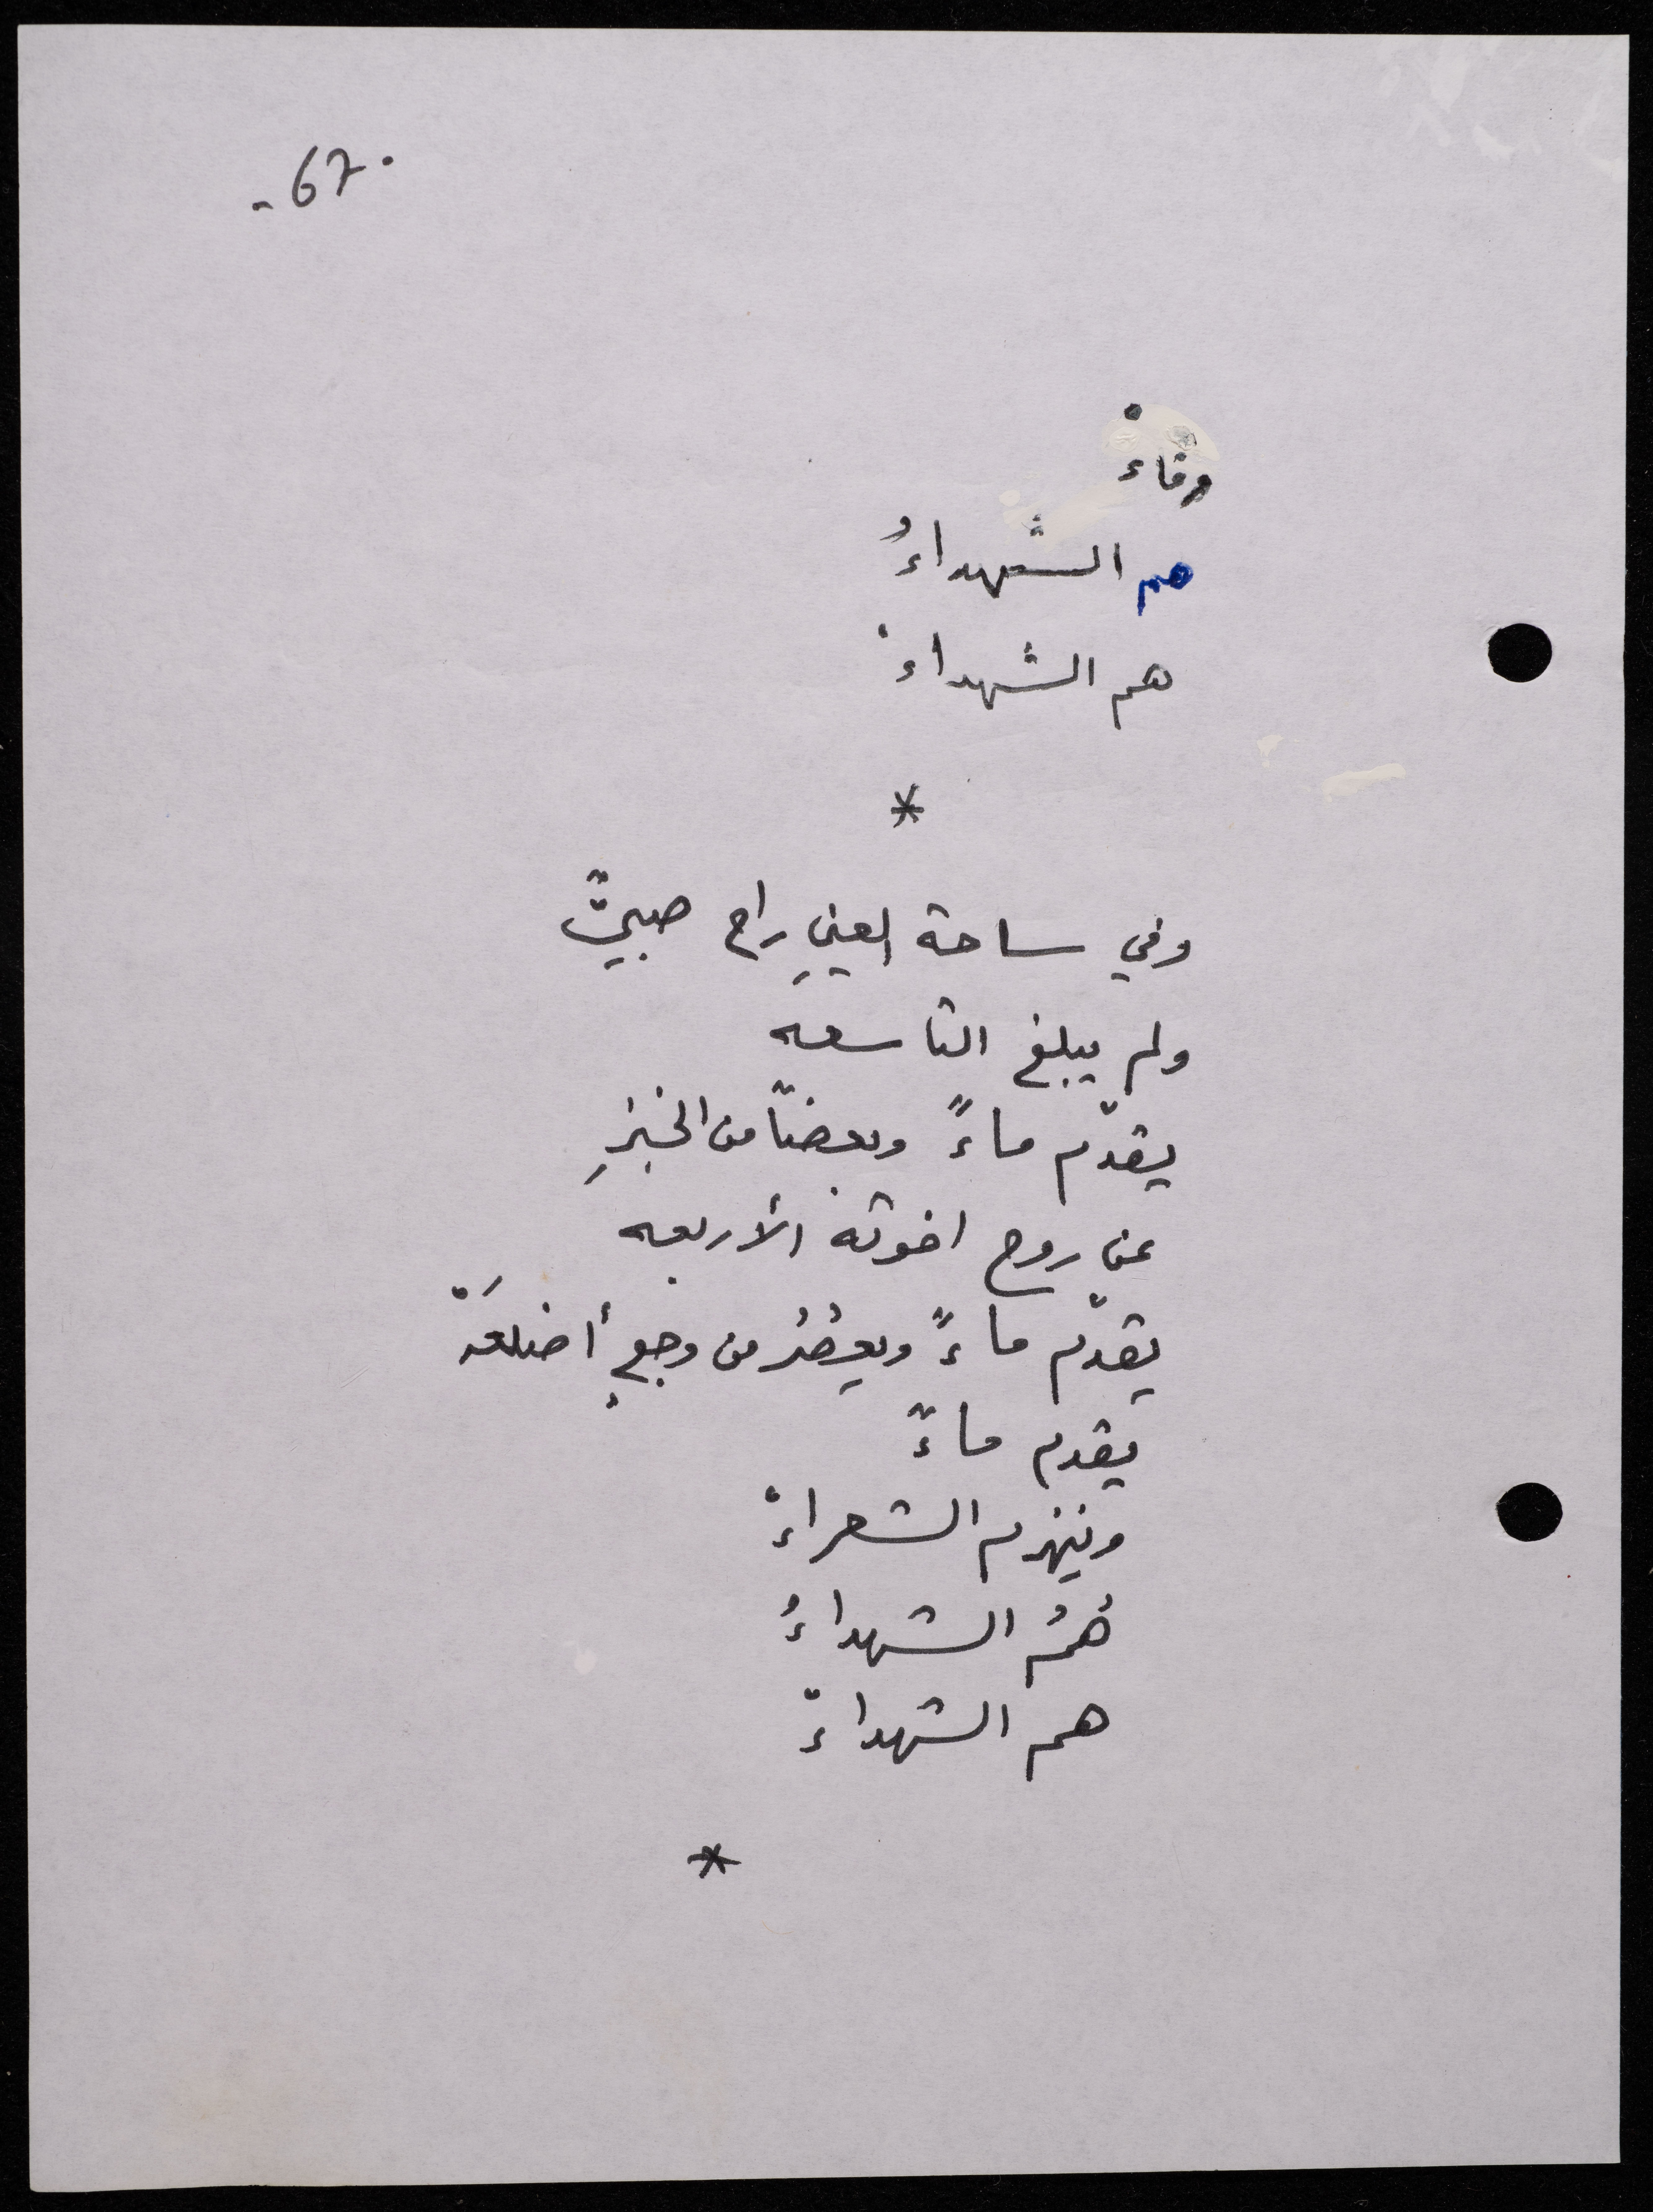 - 67 -
وفاءْ
هم الشهداءُ
هم الشهداءْ
*
وفي ساحة العينِ راح صبيٌّ
ولم يبلغ التاسعه
يقدّم ماءً وبعضاً من الخبزِ
عن روح اخوته الأربعه
يقدّم ماءً ويعصُرُ من وجعٍ أضلعَهْ
يقدم ماءً
وينهزم الشعراءْ
هُمُ الشهداءُ
هم الشهداءْ
*